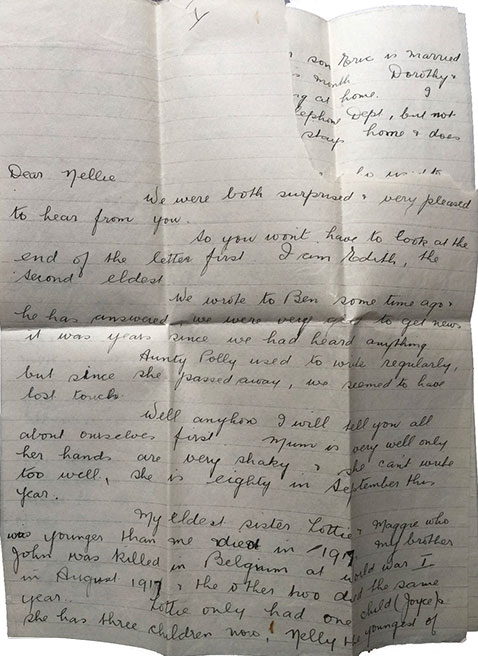 son Eric is married
month Dorothy &
at home. I
Dept, but not
stays home & does
Dear Nellie
We were both surprised & very pleased
to hear from you.
So you wont have to look at the
end of the letter first I am Edith, the
second eldest
We wrote to Ben some time ago &
he has answered, we were very glad to get news
it was years since we had heard anything
Aunty Polly used to write regularly,
but since she passed away, we seemed to have
lost touch
Well anyhow I will tell you all
about ourselves first Mum is very well only
her hands are very shaky & she cant write
too well, she is eighty in September this
year.
My eldest sister Lottie & Maggie who
was younger than me died in 1917 my brother
John was killed in Belgium at world war I
in August 1917 & the other two died the same
year. Lottie only had one child (Joyce) &
she has three children now, Nelly the youngest of